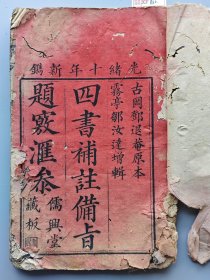 光緒十年新鐫
古岡鄧退菴原本
霧亭鄒汝達增輯
四書補註備旨
題竅滙叅
儒興堂
藏板